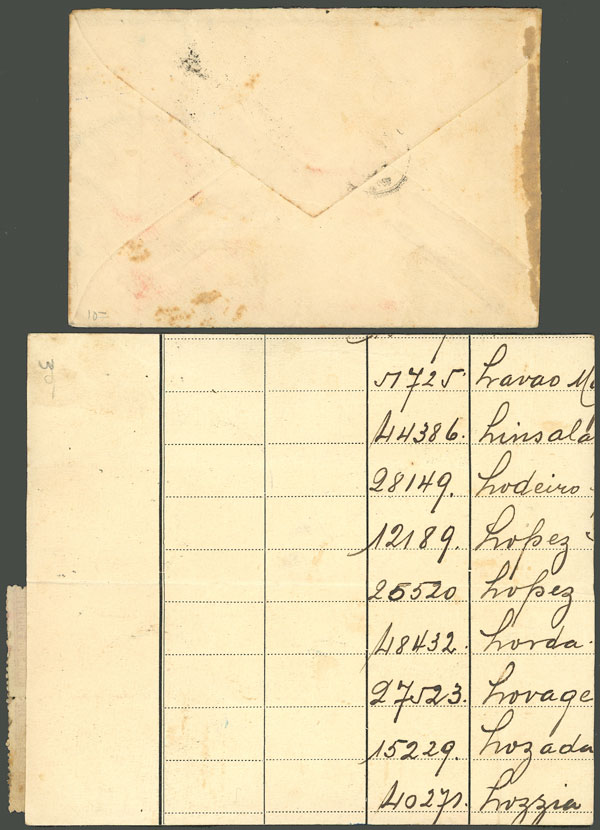 10-
30-
51725. Lavao
44386. Linsala
28149. Lodeiro
12189. Lopez
25520 Lopez
48432. Lorda.
27523. Lovage
15229. Lozada
40271. Lozzia